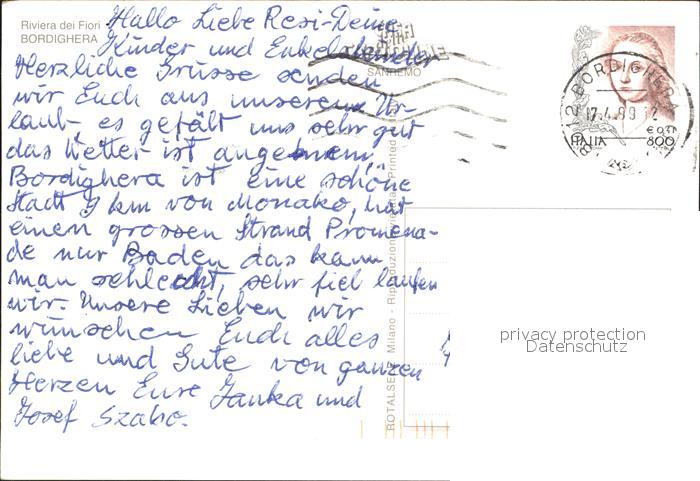 Riviera dei Fiori
BORDIGHERA
Hallo Liebe Resi-Deine
Kinder und Enkelskinder
Herzliche Grüsse senden
wir Euch aus unserem Ur-
laub, es gefält uns sehr gut
das Wetter ist angenem,
Bordighera ist eine schöne
Stadt 9 km von Monako, hat
einen grossen Strand Promena-
de nur Baden das kann
man schlecht, sehr fiel laufen
wir. Unsere Lieben wir
wünschen Euch alles
liebe und Gute von ganzen
Herzen Eure Janka und
Josef Szabo.
SANREMO
BORDIGHERA
17.4.99 12
€ 0,41
ITALIA 800
Milano - Riproduzione Printed
privacy protection
Datenschutz